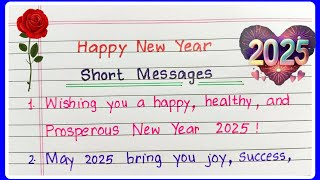 Happy New Year
2025
Short Messages
1. Wishing you a happy, healthy, and
Prosperous New Year 2025!
2. May 2025 bring you joy, success,